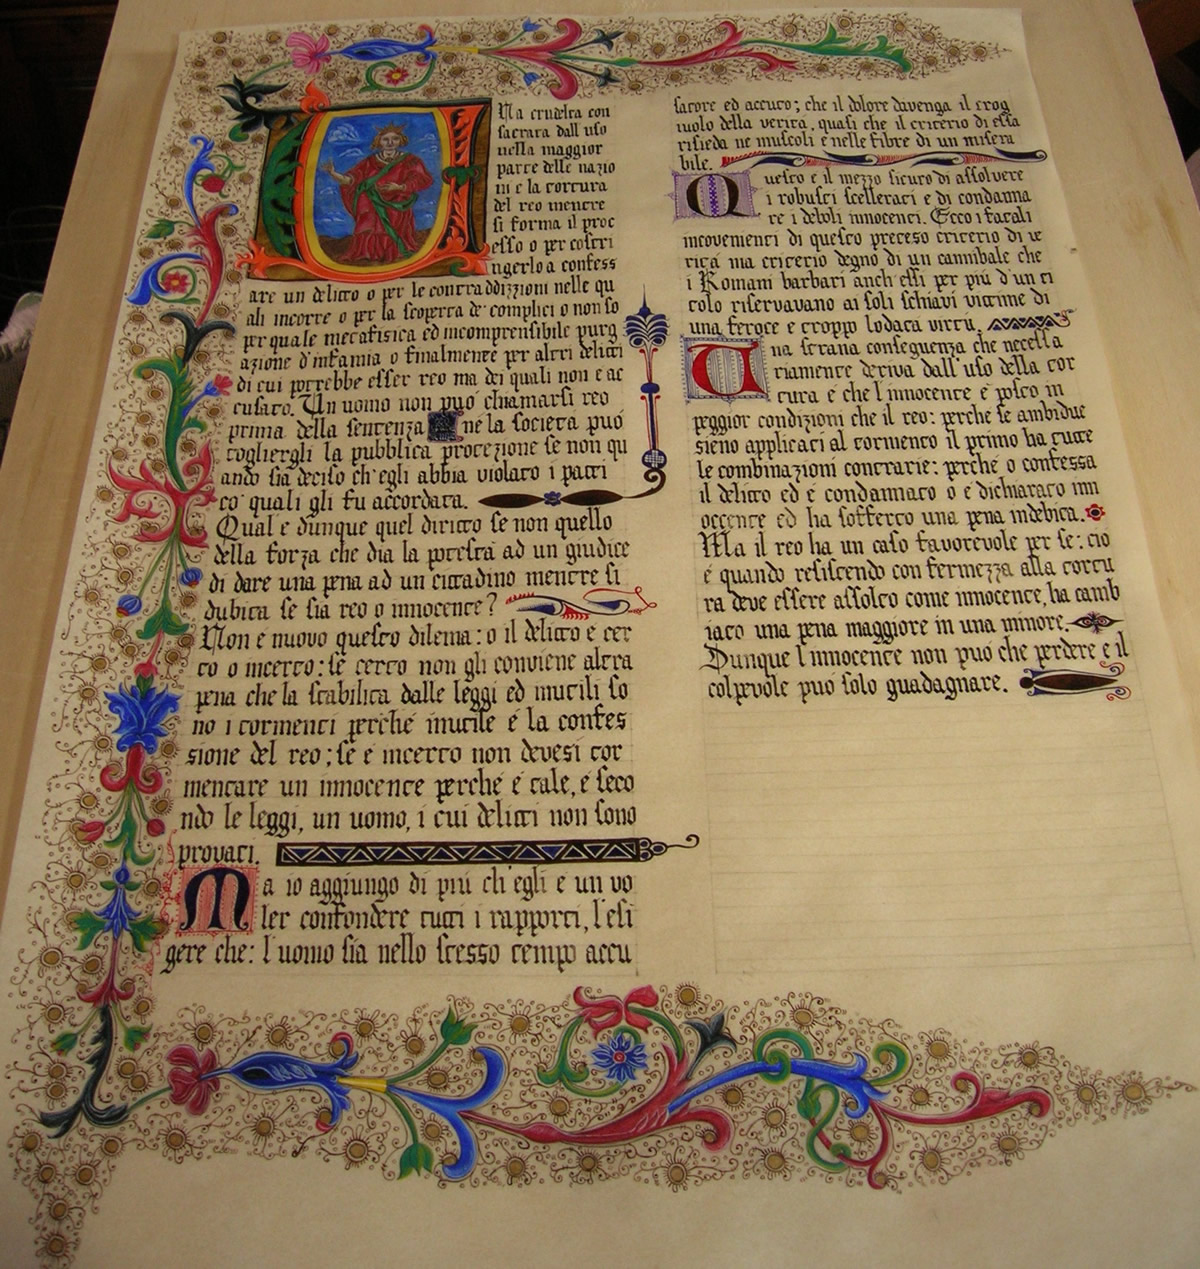 Una crudelta con
sacrata dall uso
nella maggior
parte delle nazio
ni e la tortura
del reo mentre
si forma il proc
esso o per costri
ngerlo a confess
are un delitto o per le contraddizzioni nelle qu
ali incorre o per la scoperta de' complici o non so
per quale metafisica ed incomprensibile purg
azione d'infamia o finalmente per altri delitti
di cui potrebbe esser reo ma dei quali non e ac
cusato. Un uomo non puó chiamarsi reo
prima della sentenza né la società può
togliergli la pubblica protezione se non qu
ando sia deciso ch'egli abbia violato i patti
co' quali gli fu accordata.
Qual e dunque quel diritto se non quello
della forza che dia la potestà ad un giudice
di dare una pena ad un cittadino mentre si
dubita se sia reo o innocente?
Non e nuovo questo dilema: o il delitto e cer
to o incerto: se certo non gli conviene altra
pena che la stabilita dalle leggi ed inutili so
no i tormenti perché inutile é la confes
sione del reo; se é incerto non devesi tor
mentare un innocente perché é tale, é seco
ndo le leggi, un uomo, i cui delitti non sono
provati.
Ma io aggiungo di piú ch'egli e un vo
ler confondere tutti i rapporti, l'esi
gere che: l'uomo sia nello stesso tempo accu
satore ed accuto; che il dolore davenga il crog
iuolo della verita, quasi che il criterio di essa
risieda ne muscoli e nelle fibre di un misera
bile.
Questo e il mezzo sicuro di assolvere
i robusti scellerati e di condanna
re i deboli innocenti. Ecco i fatali
incovenienti di questo preteso criterio di ve
ritá ma criterio degno di un cannibale che
i Romani barbari anch'essi per piú d'un ti
tolo riservavano ai soli schiavi vittime di
una feroce e troppo lodata virtú.
Una strana conseguenza che necessa
riamente deriva dall'uso della tor
tura é che l'innocente é posto in
peggior condizioni che il reo: perche se ambidue
sieno applicati al tormento il primo ha tutte
le combinazioni contrarie: perché o confessa
il delitto ed é condannato o é dichiarato inn
occente ed ha sofferto una pena indebita.
Ma il reo ha un caso favorevole per se: cio
é quando resistendo con fermezza alla tortu
ra deve essere assolto come innocente, ha camb
iato una pena maggiore in una minore.
Dunque l'innocente non può che perdere e il
colpevole puó solo guadagnare.